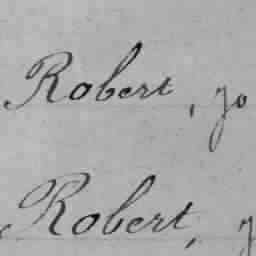 Robert, jo
Robert,